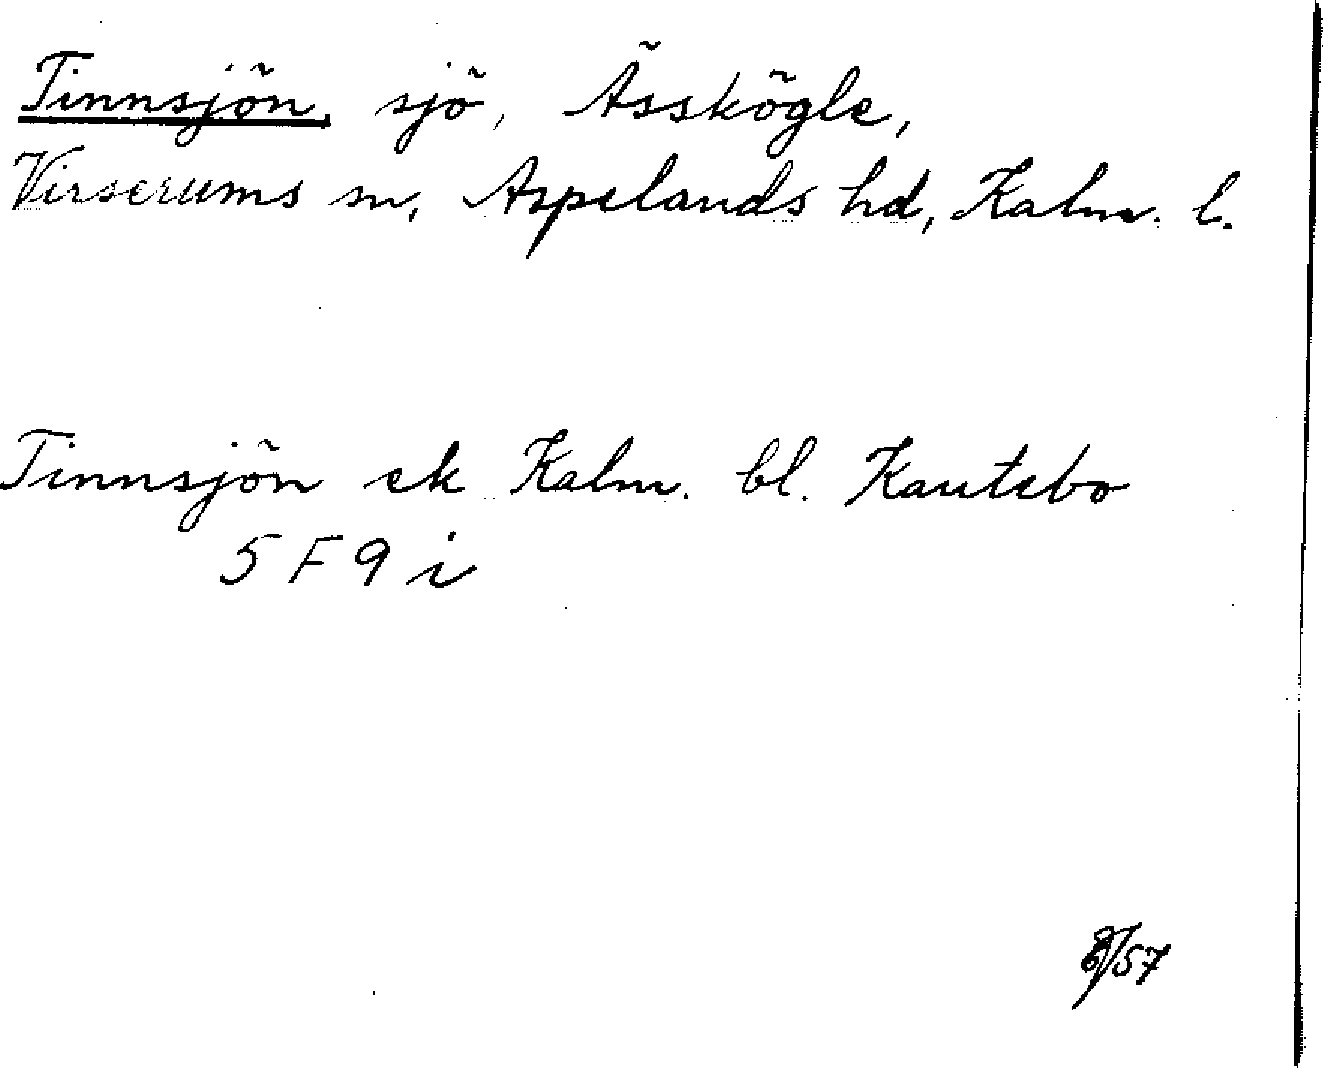 Tinnsjön, sjö, Ässkögle,
Virserums sn, Aspelands hd, Kalm. l.
Tinnsjön ek Kalm. bl. Kautebo
5 F 9 i